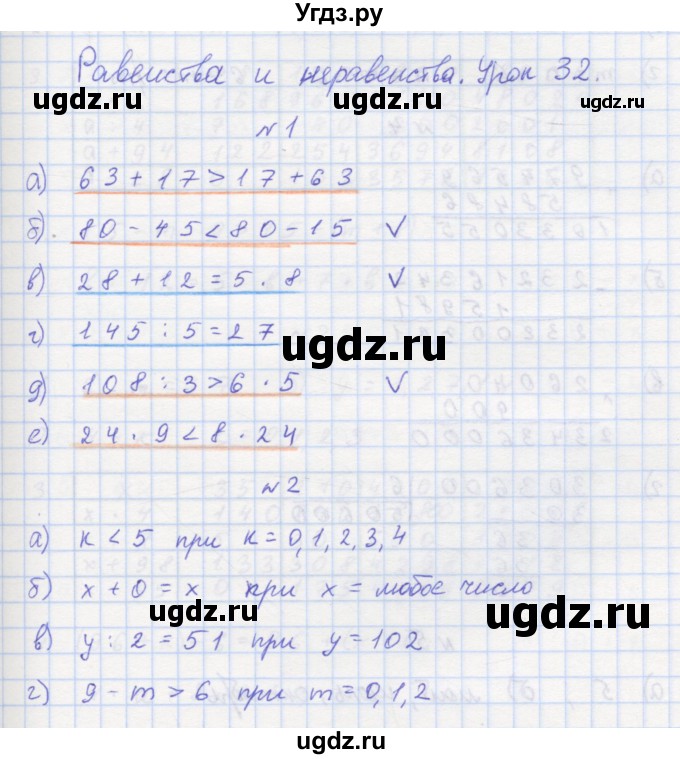 Угдз.ру
Равенства и неравенства. Урок 32.
ugdz.ru ugdz.ru ugdz.ru
№1
а) 63+17>17+63
б). 80-45<80-15 V
в) 28+12=5·8 V
г) 145:5=27
ugdz.ru
д) 108:3>6·5 V
е) 24·9<8·24
№2
а) к<5 при к=0,1,2,3,4
б) х+0=х при х=любое число
ugdz.ru ugdz.ru
в) у:2=51 при у=102
г) 9-m>6 при m=0,1,2
ugdz.ru